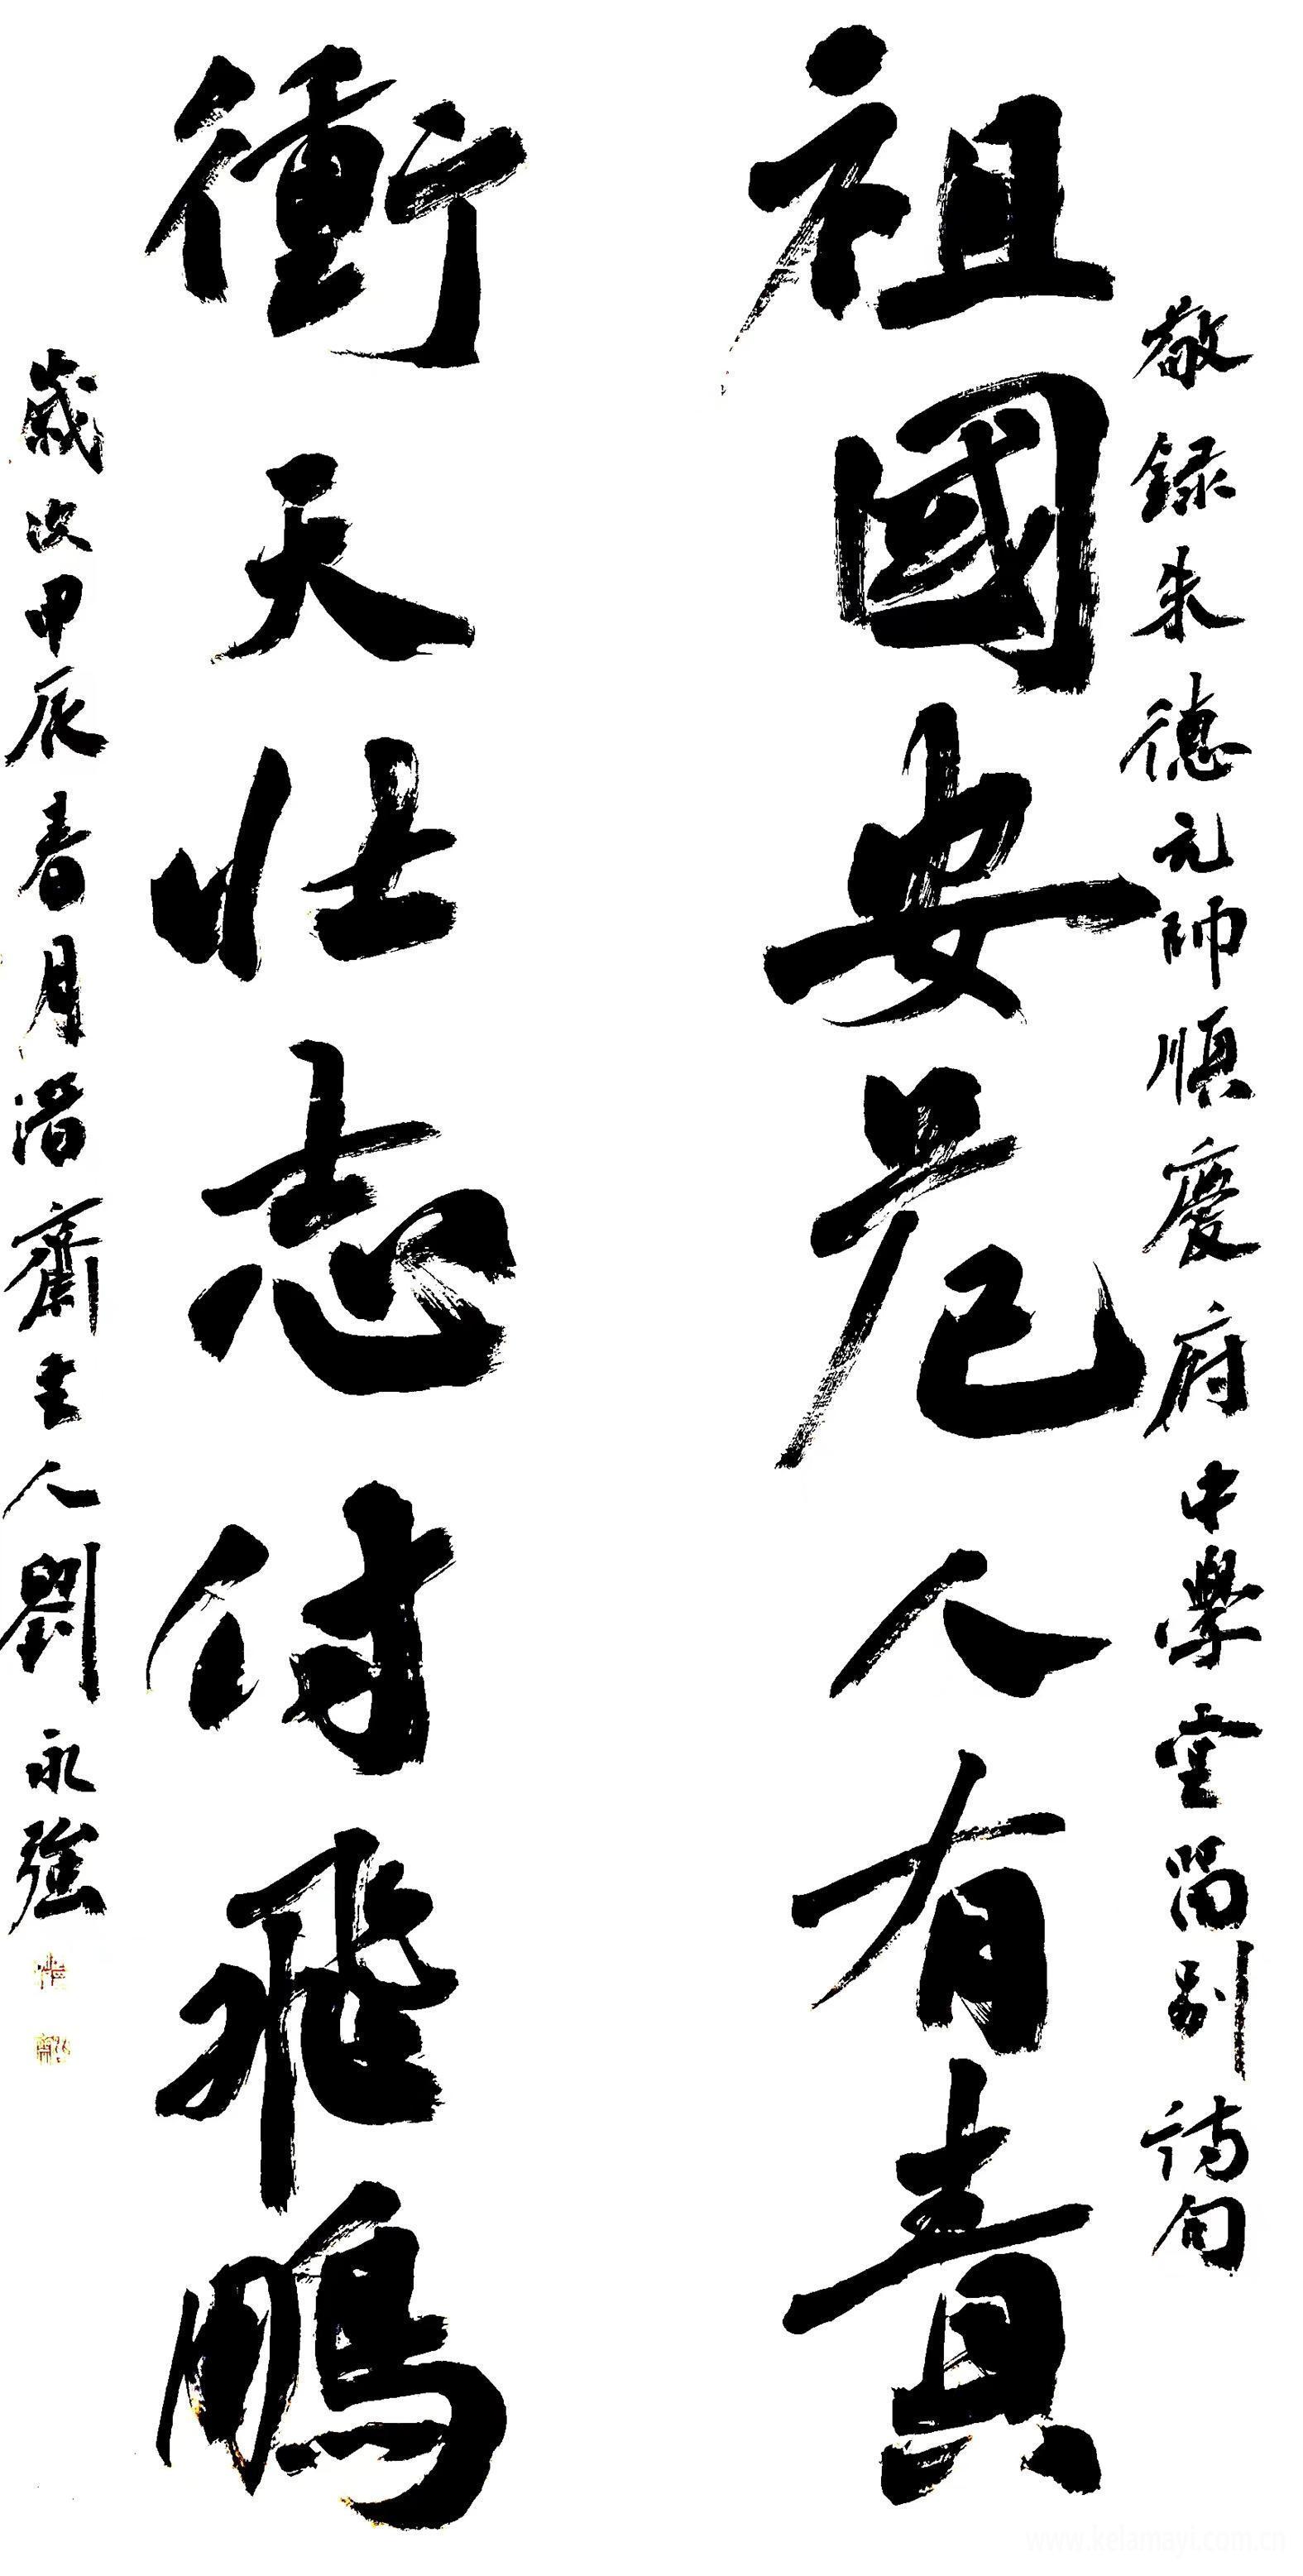 敬録朱德元帥順慶府中學堂留別詩句
祖國安危人有責
衝天壯志付飛鵬
歲次甲辰春月潛齋主人劉永強
www.kelamayi.com.cn